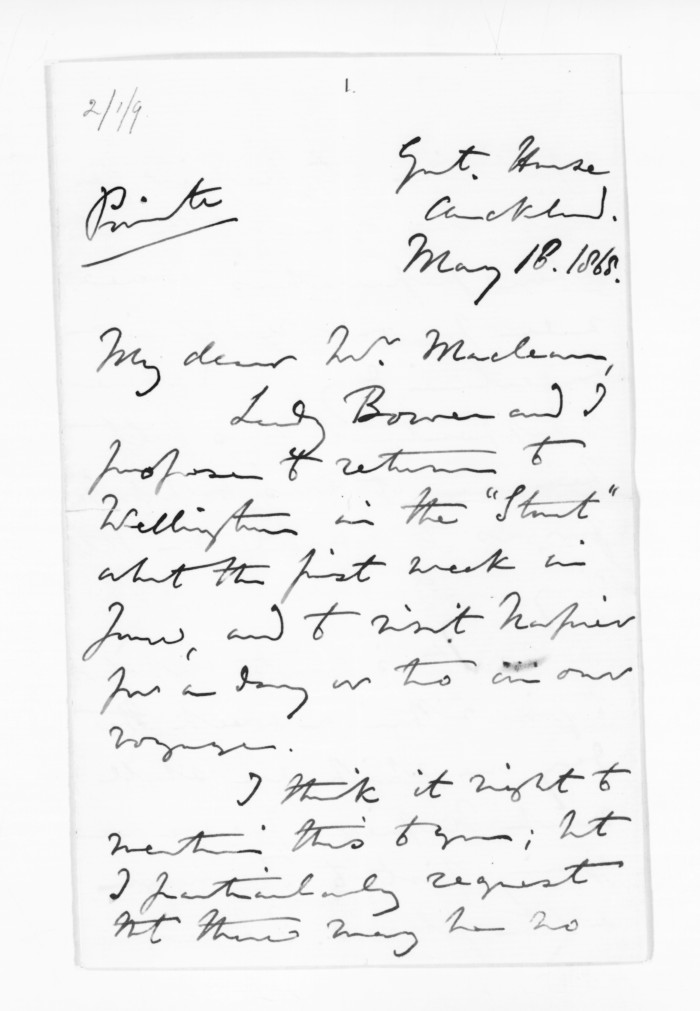 1.
2/1/9
Govt. House
Auckland.
Private
May 18. 1868.
My dear Mr. Maclean,
Lady Bowen and I
propose to return to
Wellington in the "Sturt"
about the first week in
June, and to visit Napier
for a day or two in our
voyage.
I think it right to
mention this to you; but
I particularly request
that there may be no